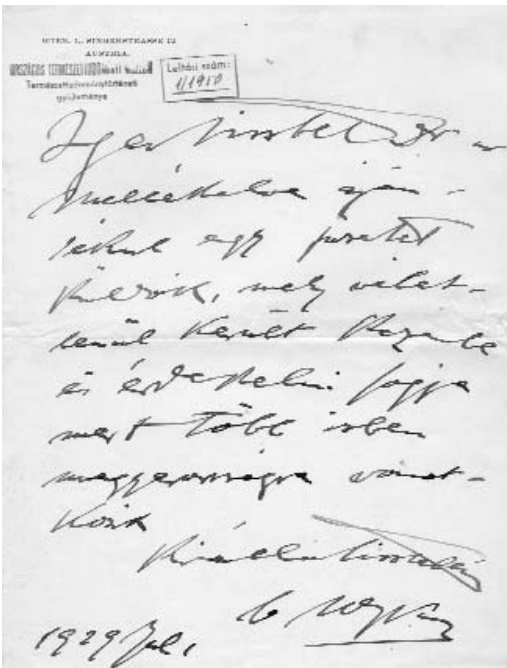 WIEN, I., SINGERSTRASSE 12
AUSTRIA.
ORSZÁGOS TERMÉSZETTUDOMÁNYI MÚZEUM
Természettudománytörténeti
gyűjteménye
Leltári szám:
1/1958
Igen tisztelt Dr úr
mellékelve aján-
dékul egy füzetet
küldök, mely vélet-
lenül került kezembe
és érdekelni fogja
mert több ízben
magyarországra vonat-
kozik
Kiváló tisztelettel
1929 Jul. 1